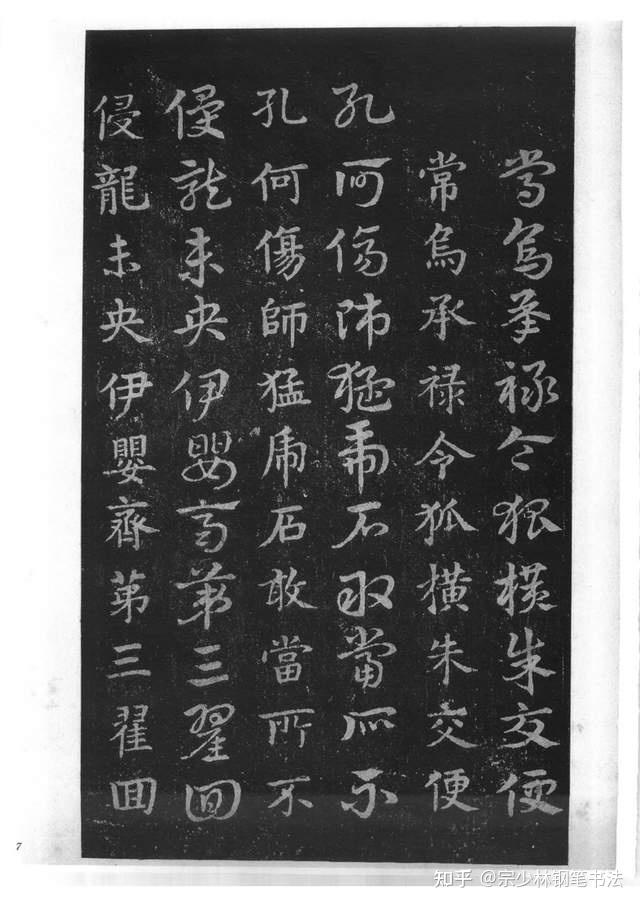 常烏承禄令狐横朱交便
常烏承禄令狐橫朱交便
孔何傷師猛虎石敢當所不
孔何傷師猛虎石敢當所不
侵龍未央伊嬰齊苐三翟回
侵龍未央伊嬰齊苐三翟囬
7
知乎 @宗少林钢笔书法